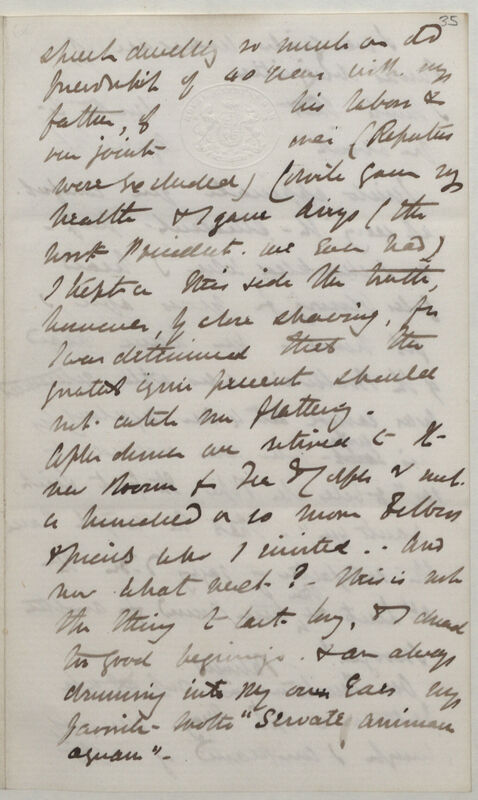 35
speech dwelling so much on old
friendship of 40 years with my
father, of his labors &
our joint ones (Reporters
were Excluded) (White gave my
health & I gave Airys (the
worst President. we Ever had)
I kept on this side the truth,
however, by close shaving, for
I was determined that the
greatest ignis present should
not catch me flattering.
After dinner we retired to the
new Rooms for Tea & Coffee & met
a hundred or so more Fellows
& friends who I invited.. And
now what next? - This is not
the thing to last long, & I dread
too good beginnings. & am always
drumming into my own Ears my
favorite motto "Servate animam
aequam" -